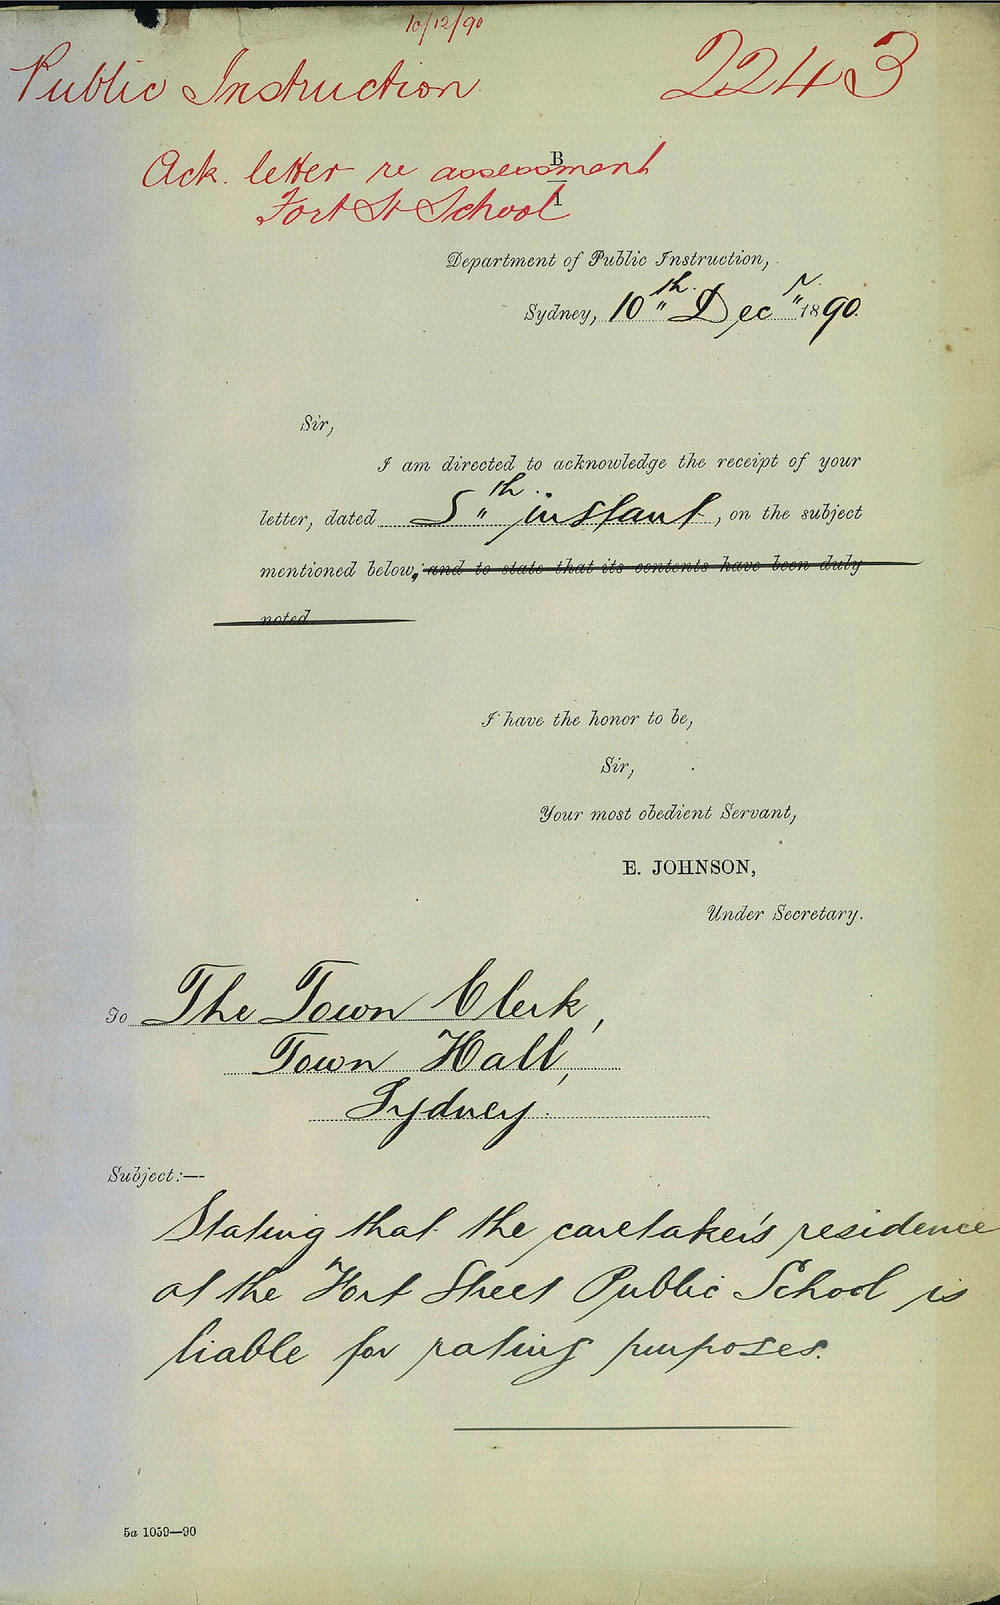 10/12/90
Public Instruction 2243
Ack. letter re assessment
B
1
Fort St School
Department of Public Instruction,
Sydney, 10th Decr 1890.
Sir,
I am directed to acknowledge the receipt of your
letter, dated 5th instant, on the subject
mentioned below, and to state that its contents have been duly
noted.
I have the honor to be,
Sir,
Your most obedient Servant,
E. JOHNSON,
Under Secretary.
To The Town Clerk,
Town Hall,
Sydney.
Subject:—
Stating that the caretaker's residence
at the Fort Street Public School is
liable for rating purposes.
5a 1059—90